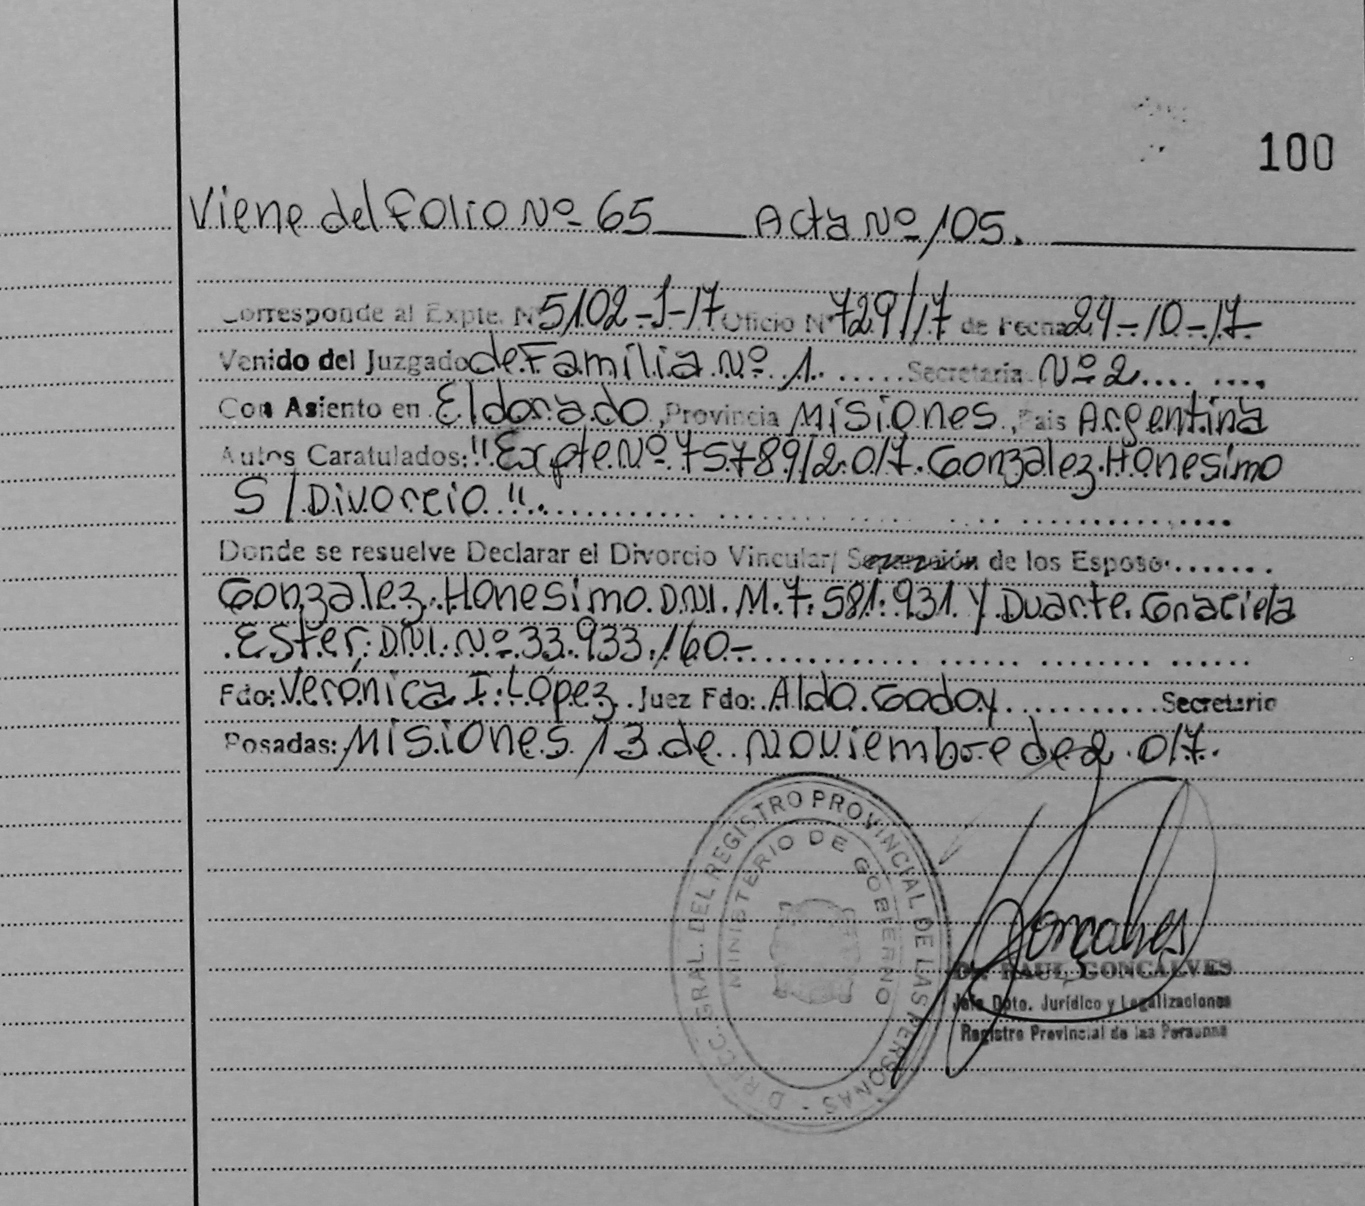 100
Viene del Folio Nº 65 ____ Acta Nº 105. ____
Corresponde al Expte. Nº 5102-J-17 Oficio Nº 729/17 de Fecha 24-10-17-
Venido del Juzgado de Familia Nº 1. ..... Secretaria Nº 2.... ....
Con Asiento en Eldorado, Provincia Misiones, Pais Argentina
Autos Caratulados: "Expte Nº 75789/2.017. Gonzalez Honesimo
S/Divorcio"..........
Donde se resuelve Declarar el Divorcio Vincular/ Separación de los Esposo.......
Gonzalez Honesimo D.N.I. M. 7.581.931. Y Duarte Graciela
Ester D.N.I. Nº 33.933.160-..........
Fdo: Verónica I. López Juez Fdo: Aldo Godoy.......... Secretario
Posadas: Misiones 13 de Noviembre de 2.017.
DIRECC. GRAL. DEL REGISTRO PROVINCIAL DE LAS PERSONAS -
MINISTERIO DE GOBIERNO
Goncalves
Dr. RAUL GONÇALVES
Jefe Dpto. Jurídico y Legalizaciones
Registro Provincial de las Personas